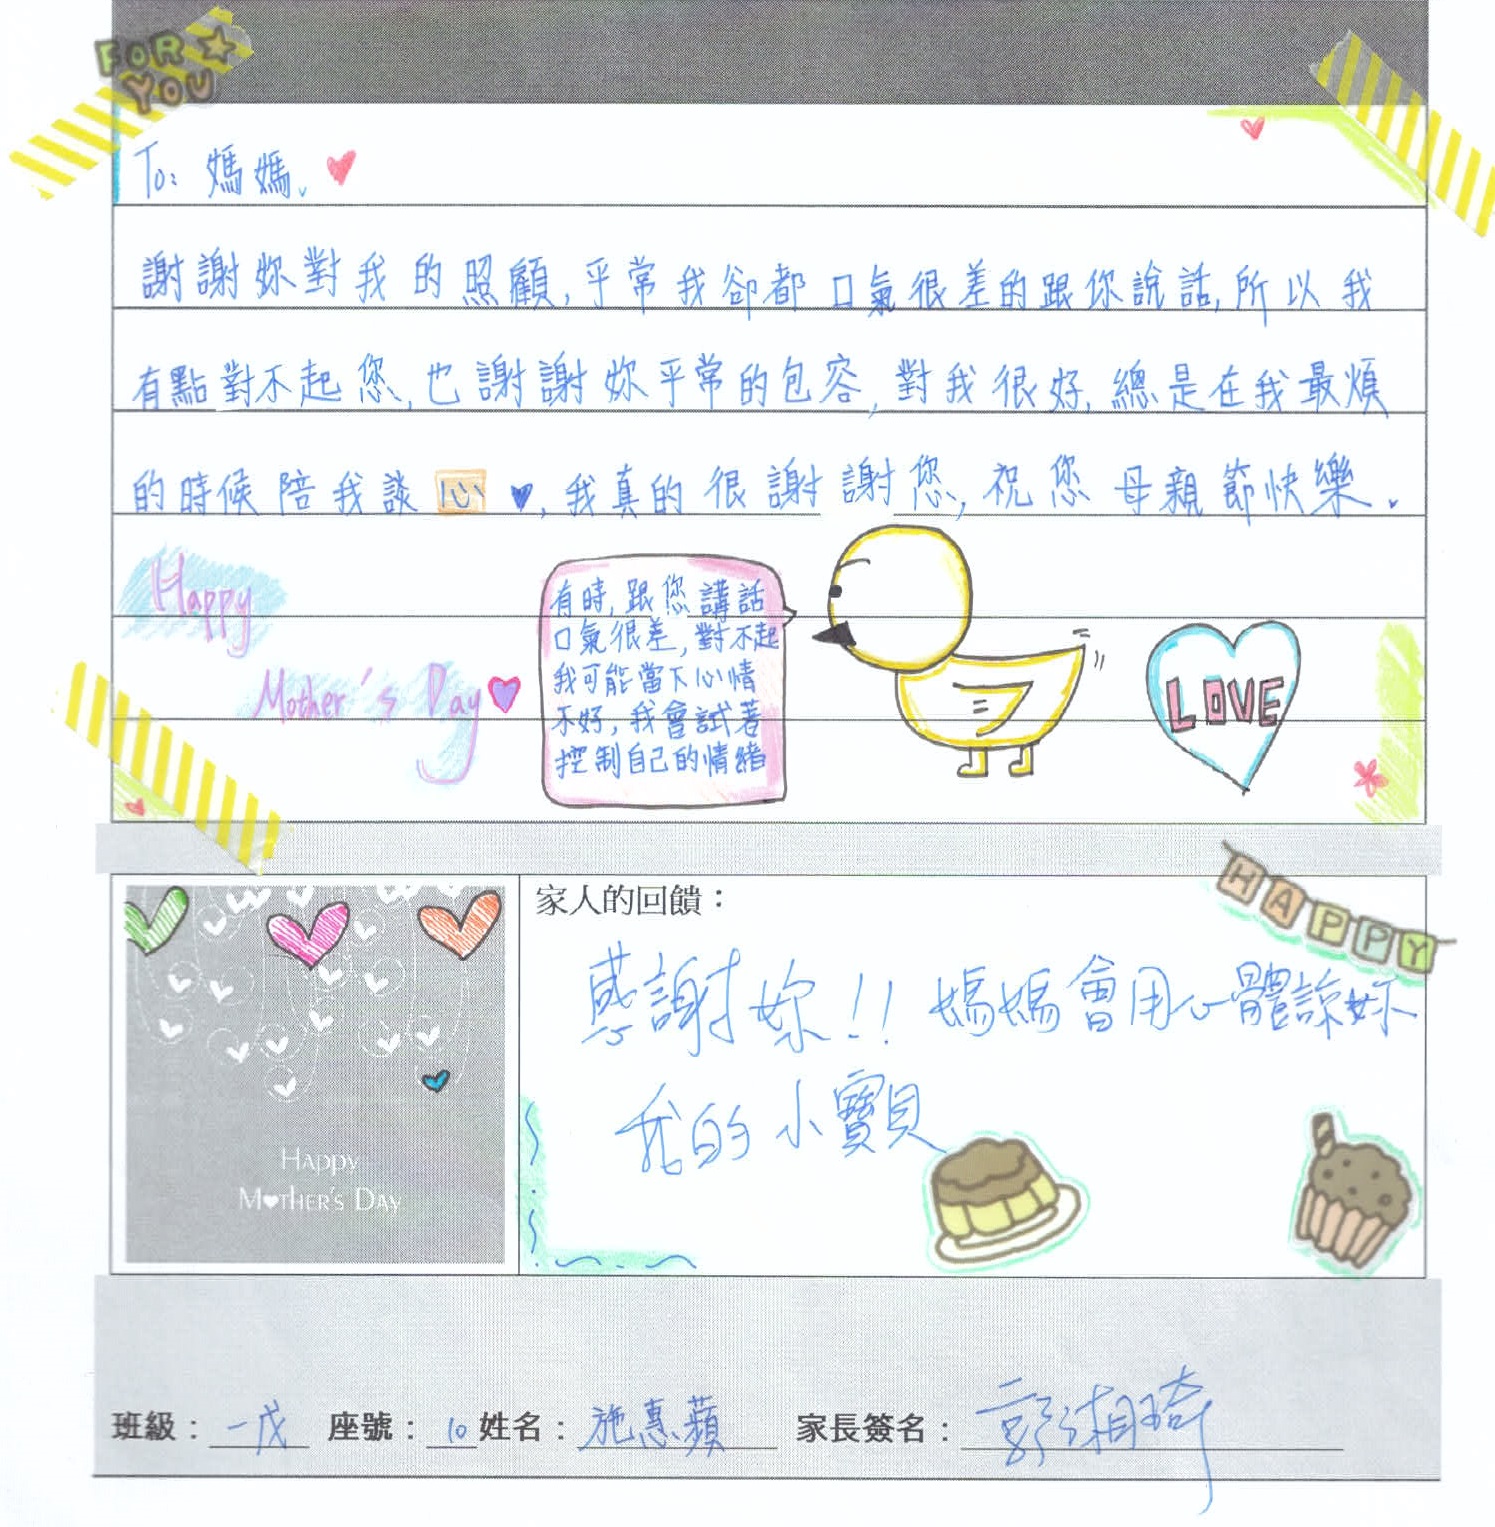 FOR
YOU
To: 媽媽.
謝謝妳對我的照顧,平常我卻都口氣很差的跟你說話,所以我
有點對不起您,也謝謝妳平常的包容,對我很好,總是在我最煩
的時候陪我談心,我真的很謝謝您,祝您母親節快樂.
Happy
Mother's Day
有時,跟您講話
口氣很差,對不起
我可能當下心情
不好,我會試著
控制自己的情緒
LOVE
HAPPY
家人的回饋：
感謝妳!! 媽媽會用心體諒妳
我的小寶貝
HAPPY
MOTHER'S DAY
班級：一戊 座號：10 姓名：施惠蘋 家長簽名：郭湘琦